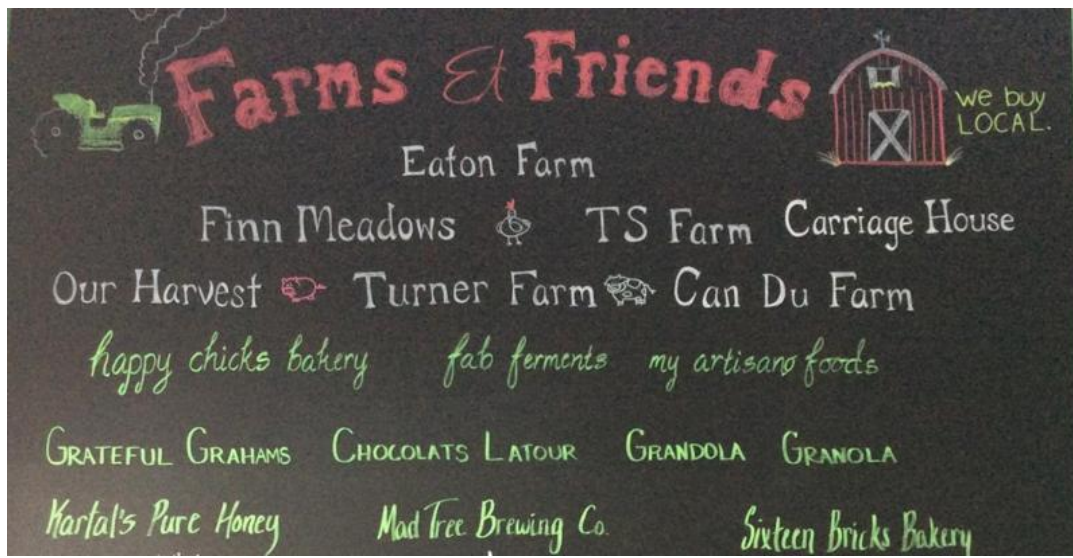 Farms Et Friends
we buy
LOCAL.
Eaton Farm
Finn Meadows TS Farm Carriage House
Our Harvest Turner Farm Can Du Farm
happy chicks bakery fab ferments my artisano foods
GRATEFUL GRAHAMS CHOCOLATS LATOUR GRANDOLA GRANOLA
Kartal's Pure Honey Mad Tree Brewing Co. Sixteen Bricks Bakery